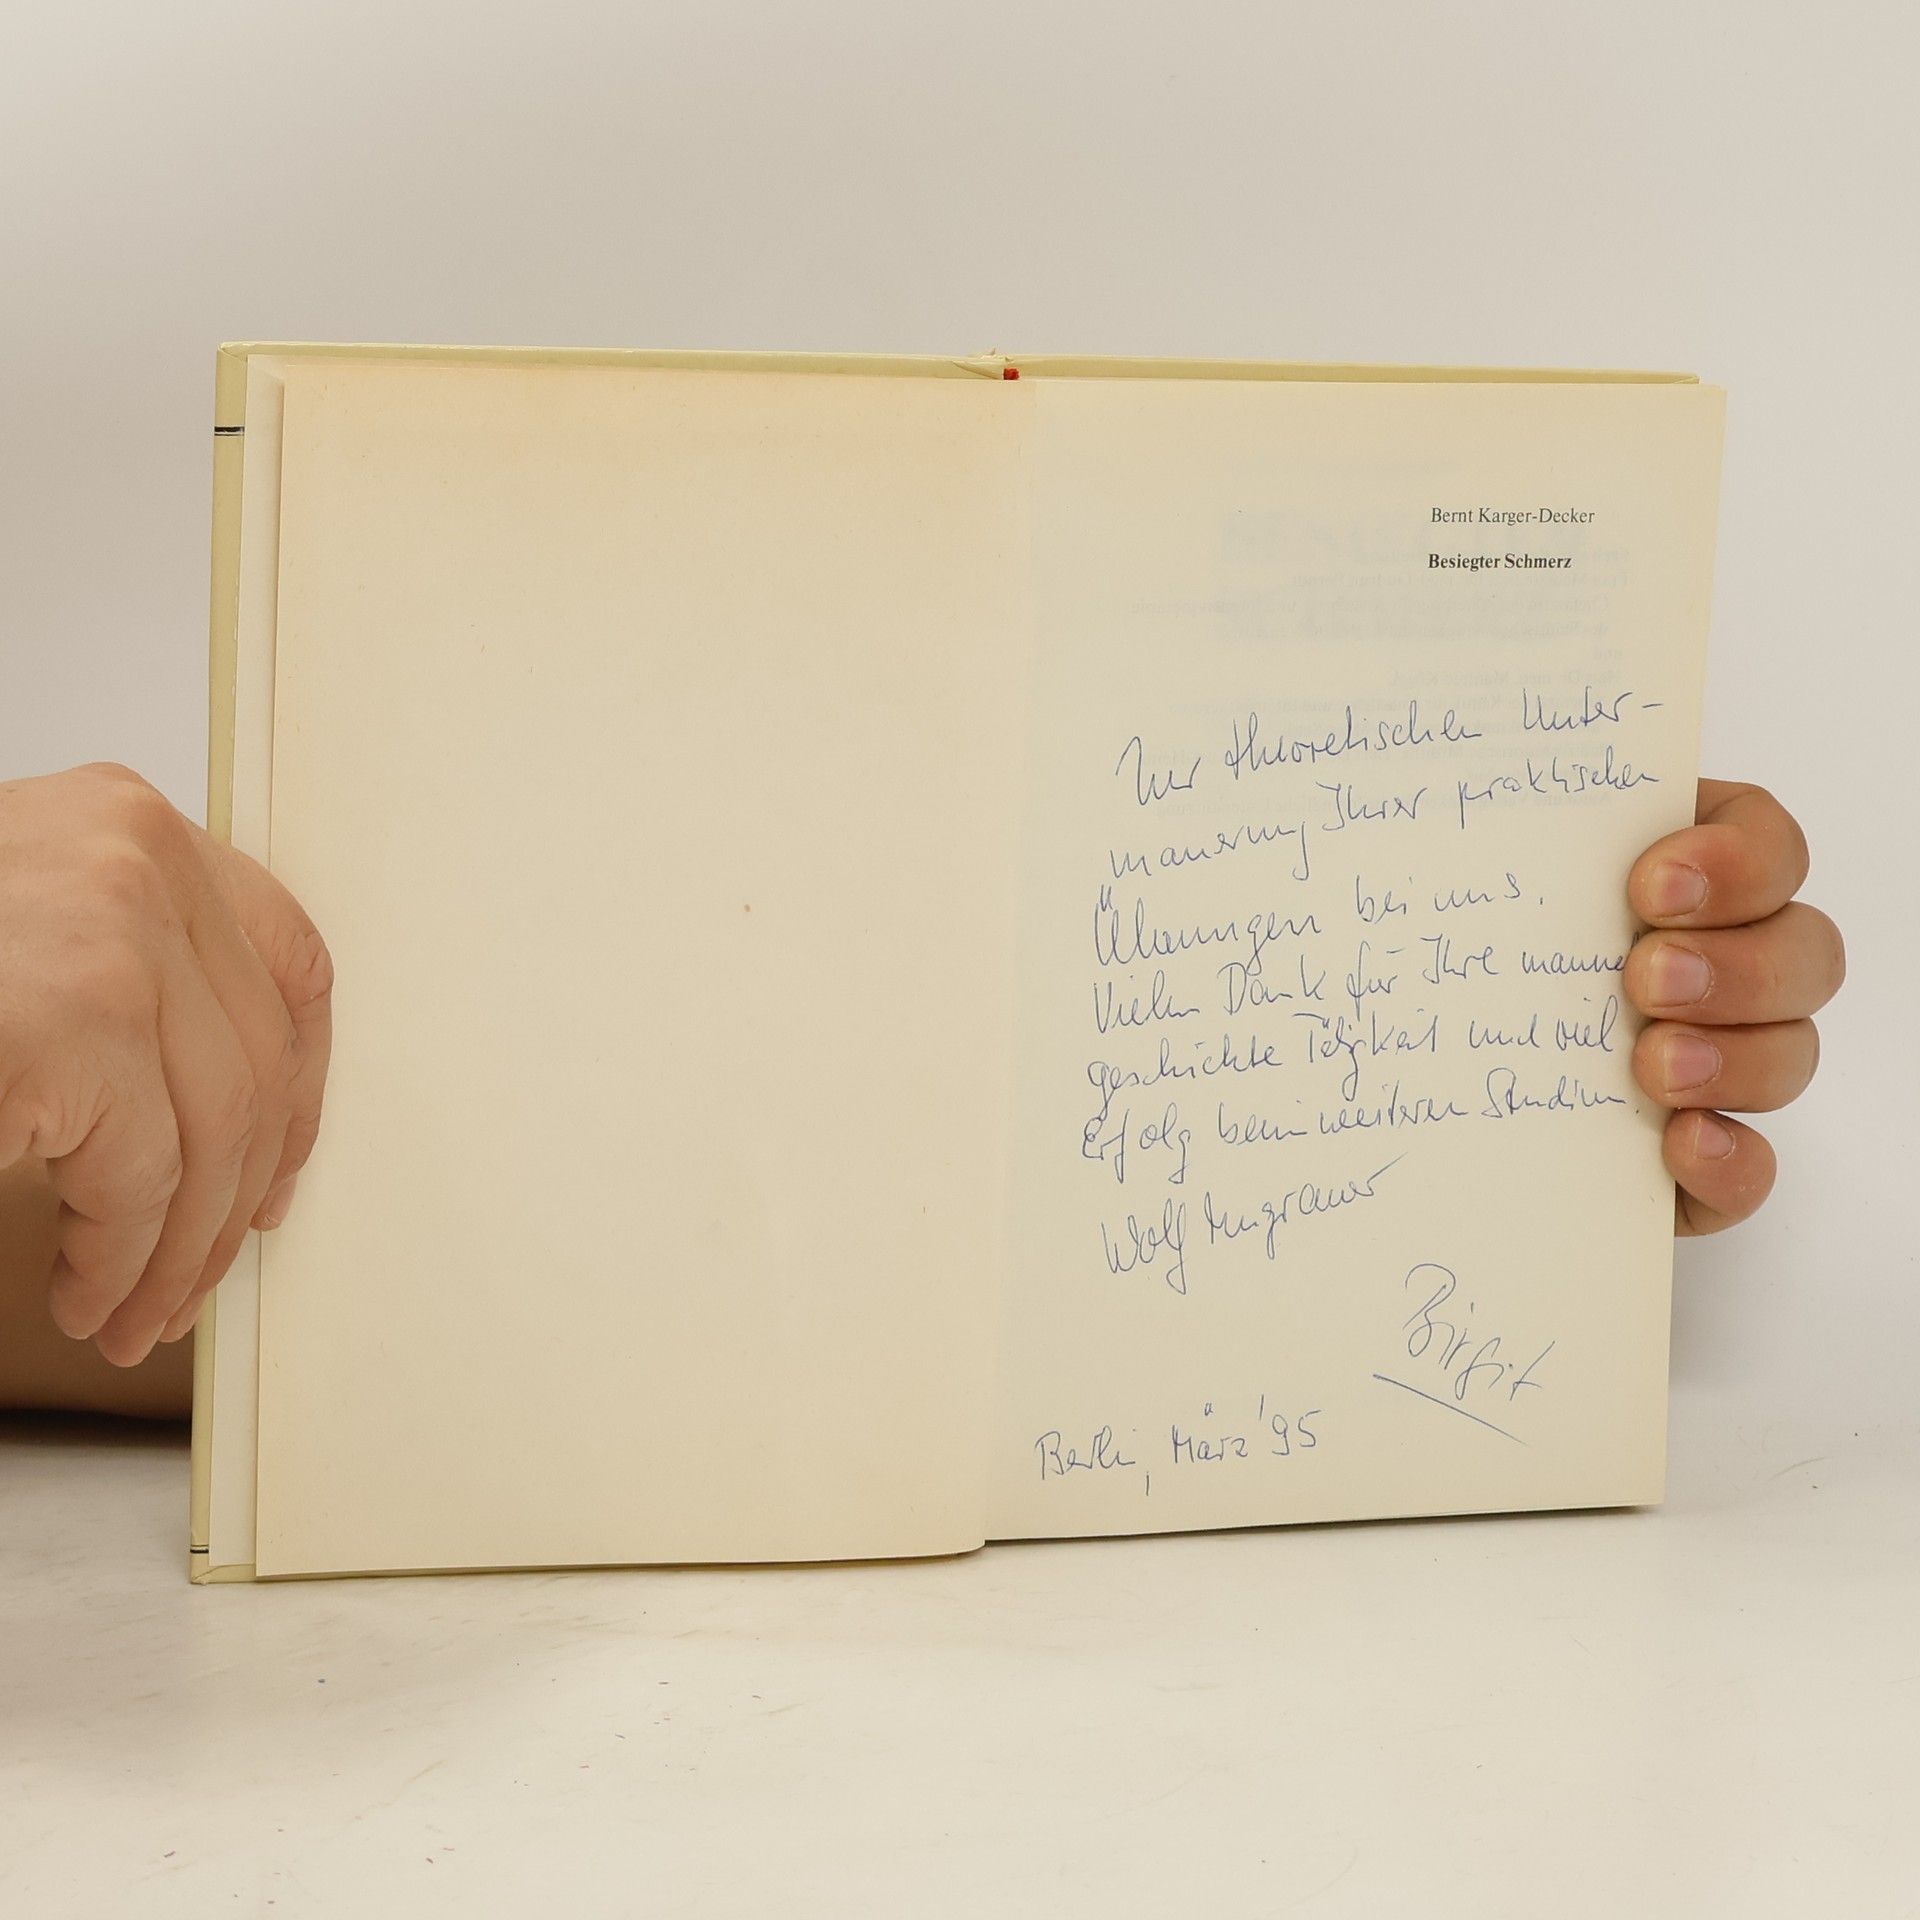 Bernt Karger-Decker
Besiegter Schmerz
Zur theoretischen Unter-
mauerung Ihrer praktischen
Übungen bei uns.
Vielen Dank für Ihre
geschickte Tätigkeit und viel
Erfolg beim weiteren Studium.
Wolf
Birgit
Berlin, März '95